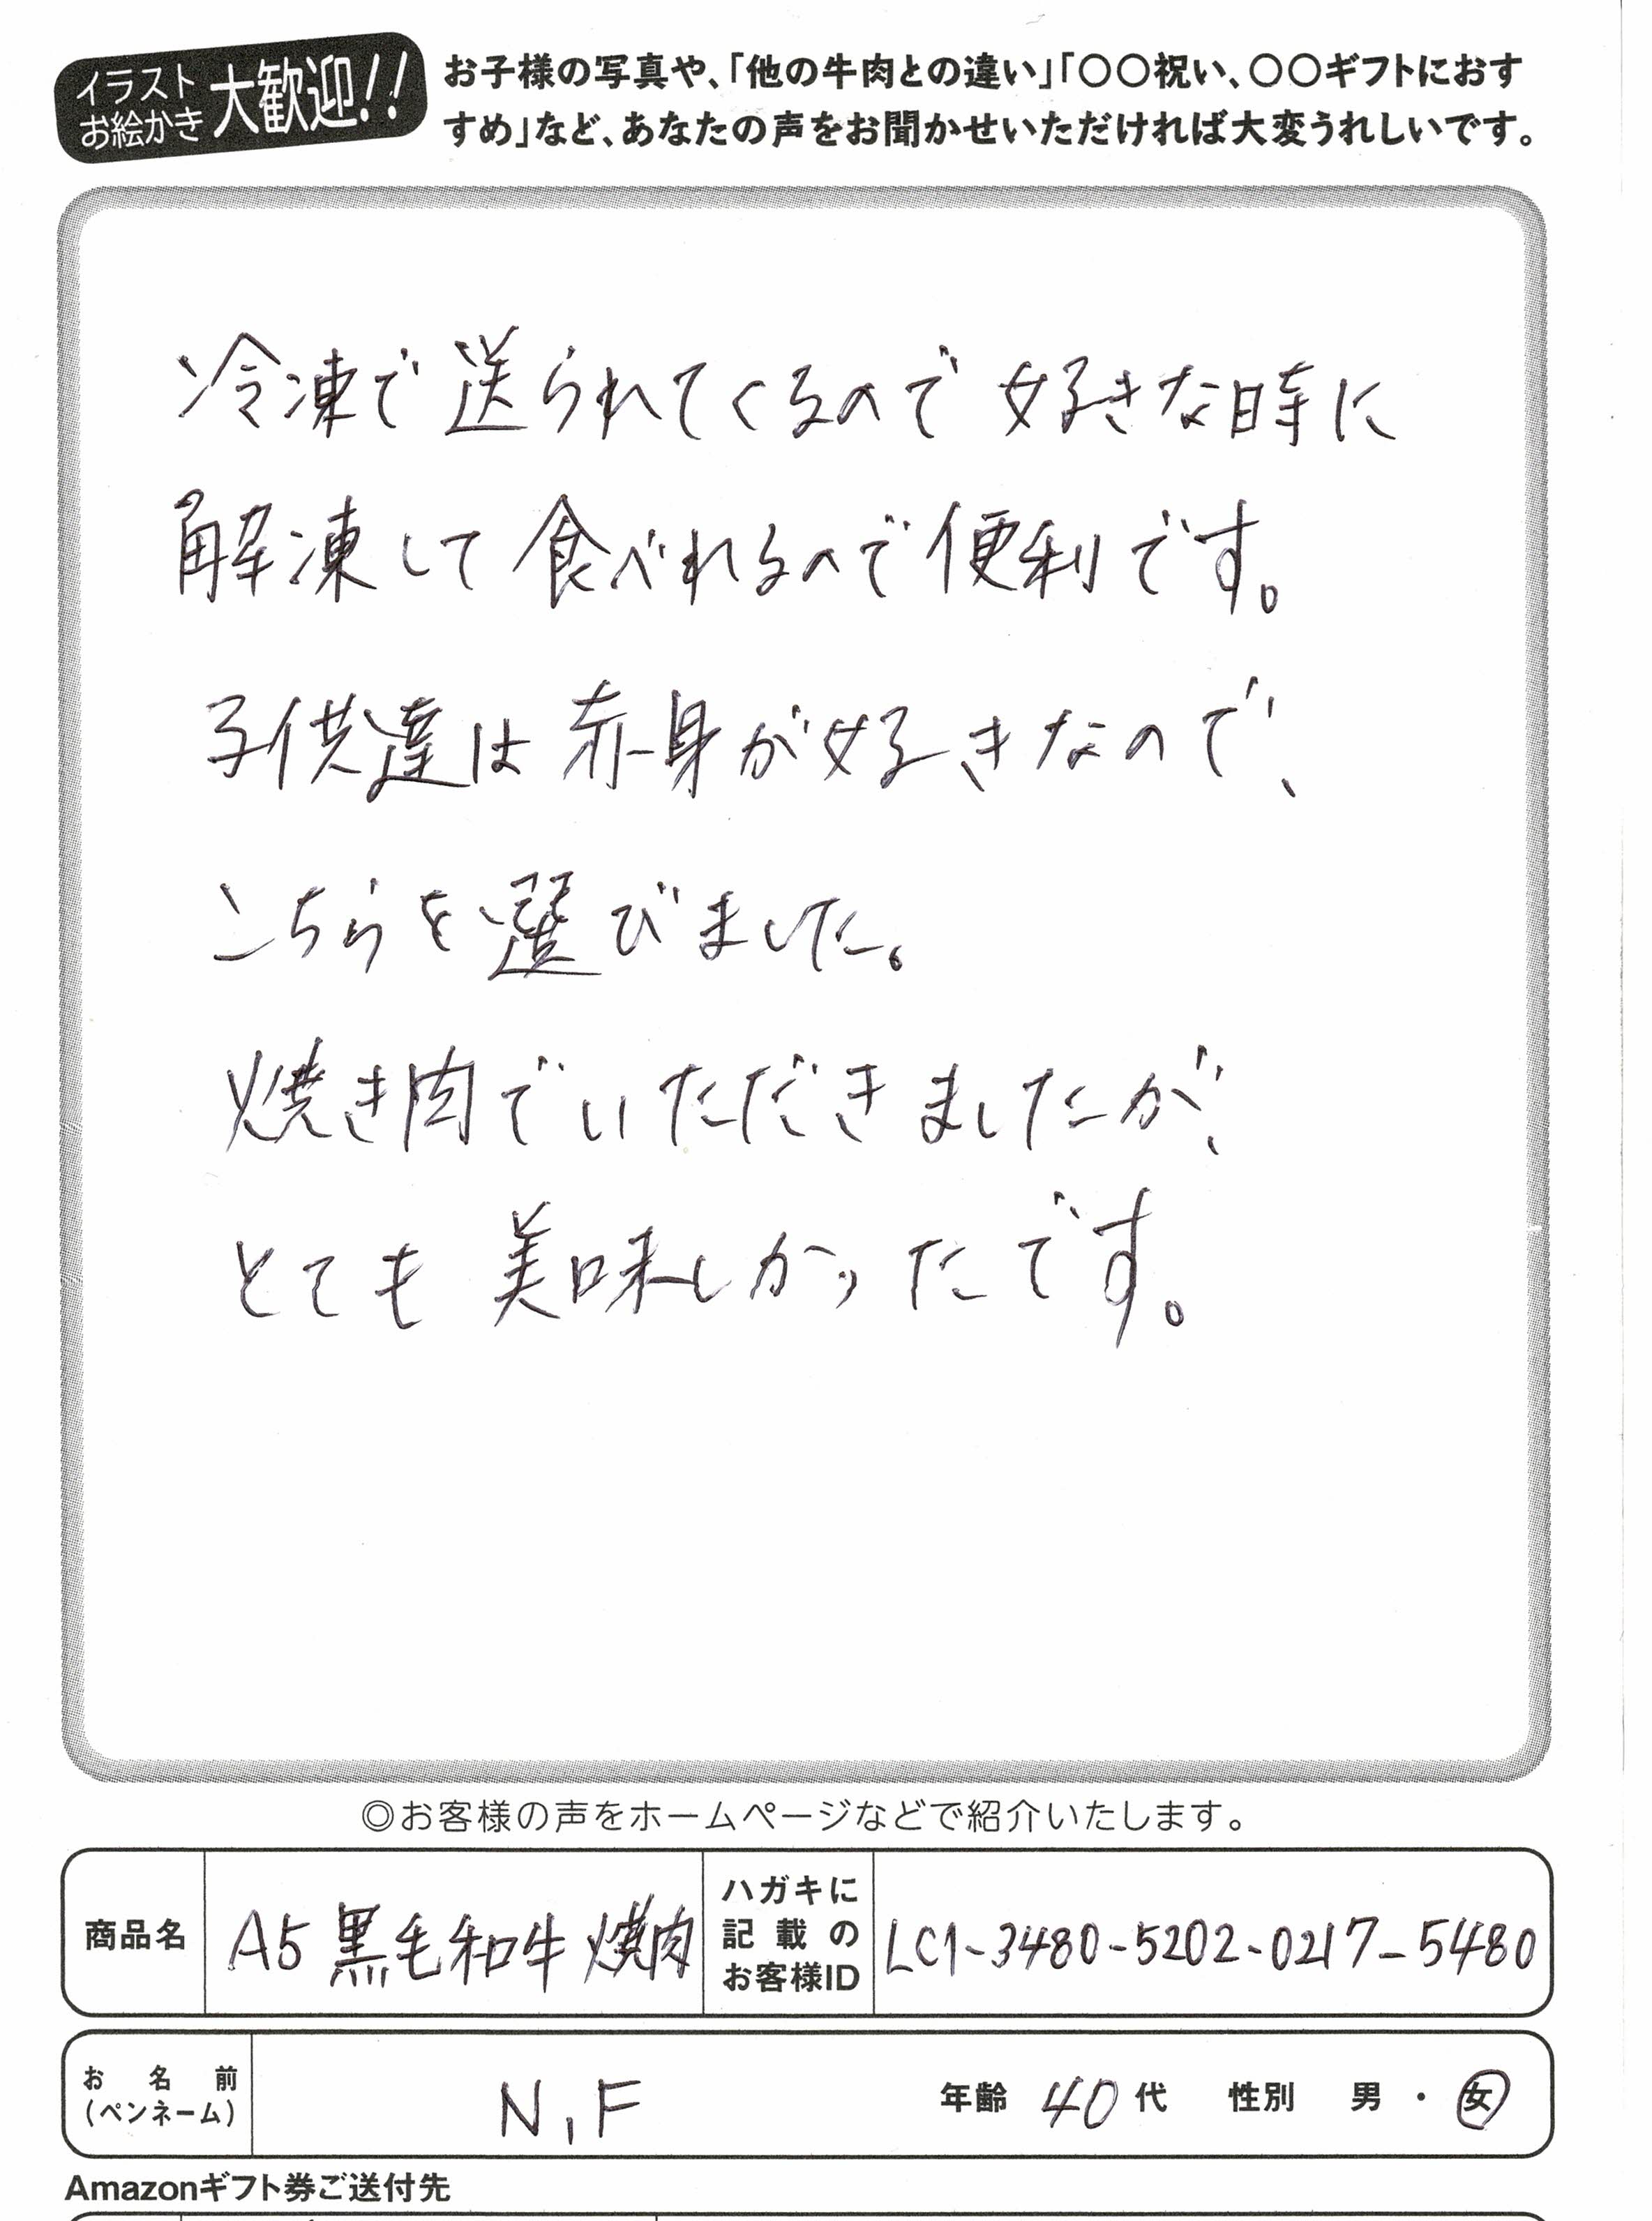 イラスト
お絵かき
大歓迎!!
お子様の写真や、「他の牛肉との違い」「〇〇祝い、〇〇ギフトにおす
すめ」など、あなたの声をお聞かせいただければ大変うれしいです。
冷凍で送られてくるので好きな時に
解凍して食べれるので便利です。
子供達は赤身が好きなので、
こちらを選びました。
焼き肉でいただきましたが、
とても美味しかったです。
◎お客様の声をホームページなどで紹介いたします。
商品名 A5黒毛和牛焼肉
ハガキに
記載の
お客様ID
LC1-3480-5202-0217-5480
お名前
(ペンネーム)
N,F
年齢 40代 性別 男・女
Amazonギフト券ご送付先